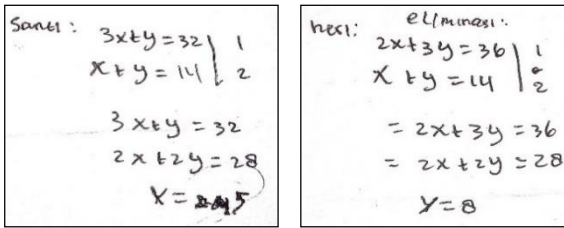 Santi :
3x+y=32 | 1
x+y=14 | 2
3x+y=32
2x+2y=28
x= 5
hesi: eliminasi:
2x+3y=36 | 1
x+y=14 | 2
= 2x+3y=36
= 2x+2y=28
y=8